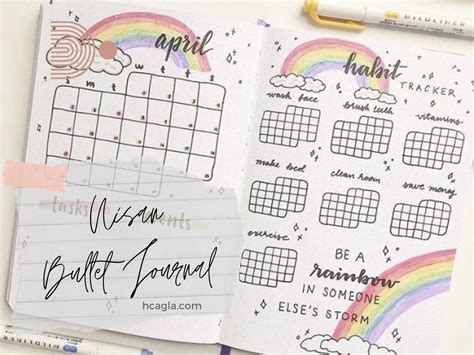 april
tasks
Nisan
Bullet Journal
hcagla.com
habit
TRACKER
wash face
brush teeth
vitamins
make bed
clean room
save money
exercise
BE A
rainbow
IN SOMEONE
ELSE'S STORM
MILDLINER